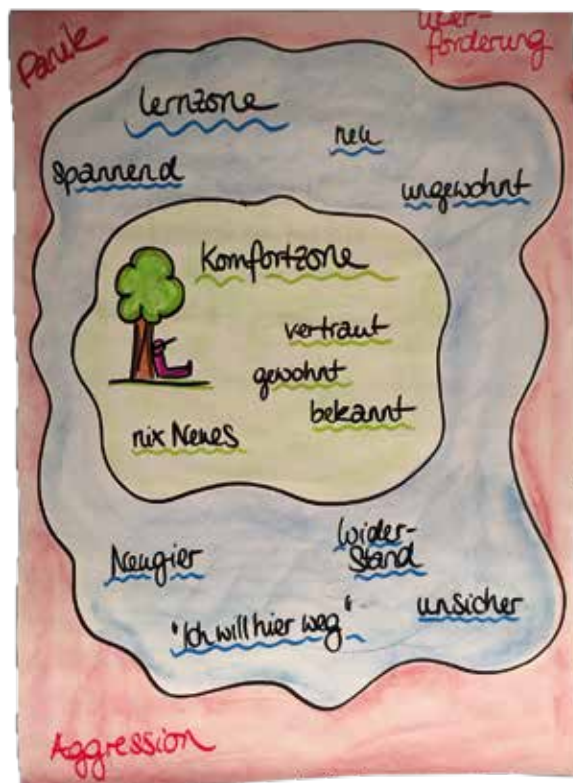 Panik
Über-
forderung
Lernzone
neu
spannend
ungewohnt
Komfortzone
vertraut
gewohnt
bekannt
nix Neues
Neugier
Wider-
stand
unsicher
"Ich will hier weg"
Aggression